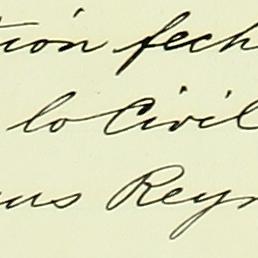 ción fech
lo Civil
us Reyn